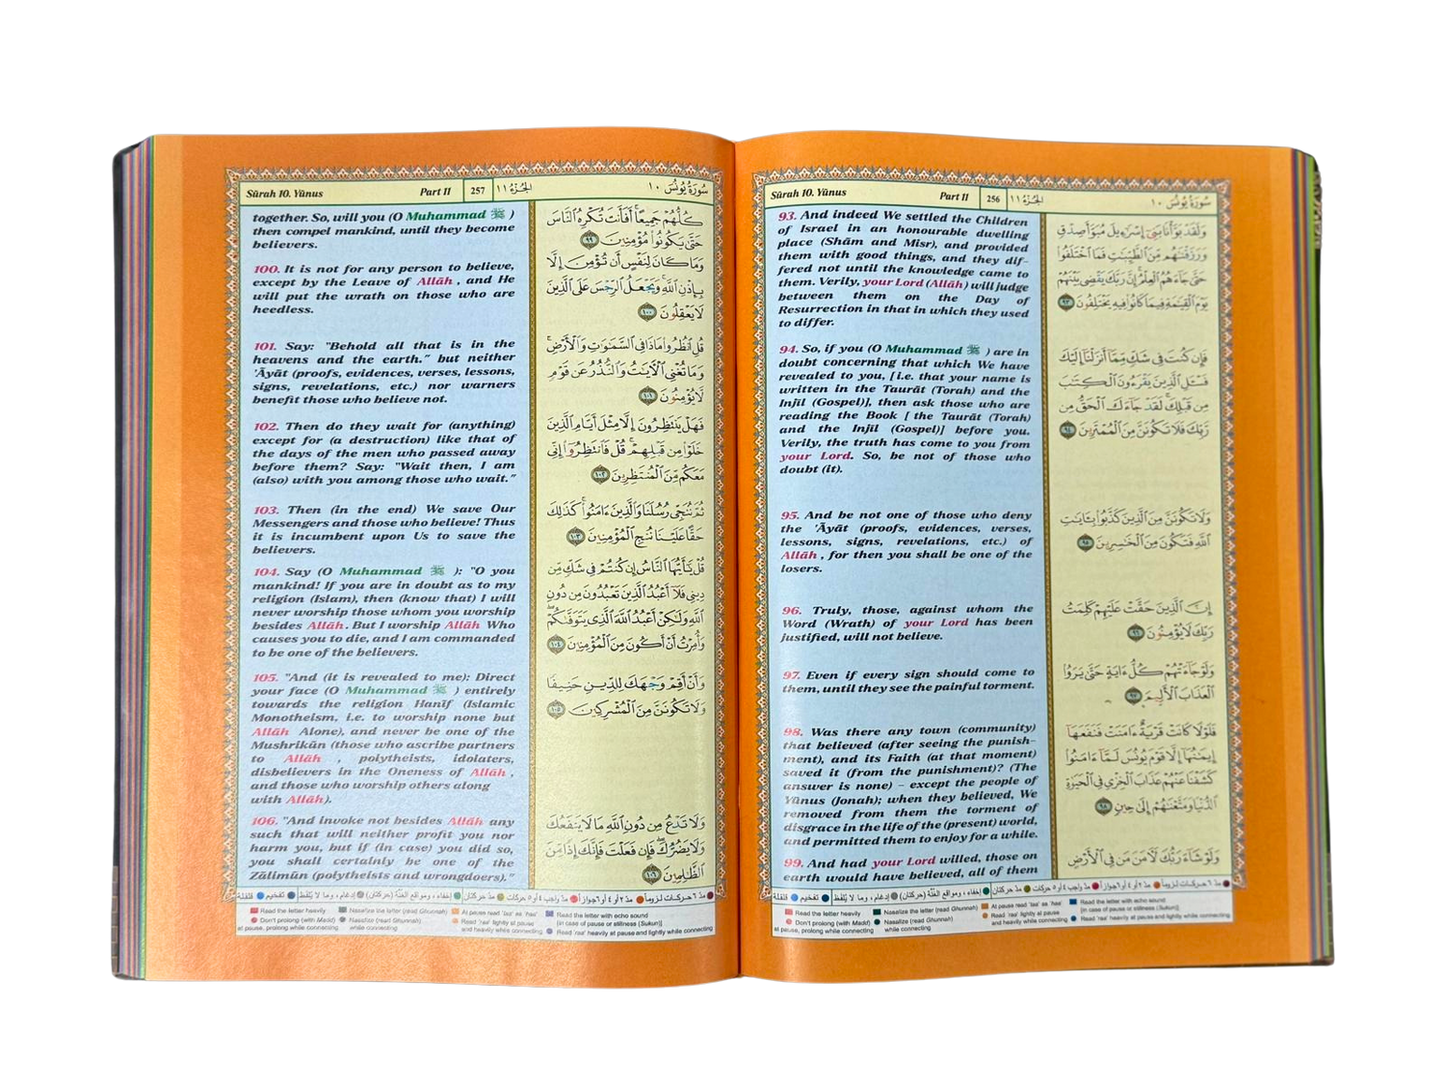 Sûrah 10. Yûnus
Part 11
256
الجزء ١١
سورة يونس ١٠
93. And indeed We settled the Children
of Israel in an honourable dwelling
place (Shâm and Misr), and provided
them with good things, and they dif-
fered not until the knowledge came to
them. Verily, your Lord (Allâh) will judge
between them on the Day of
Resurrection in that in which they used
to differ.
94. So, if you (O Muhammad ﷺ ) are in
doubt concerning that which We have
revealed to you, [i.e. that your name is
written in the Taurât (Torah) and the
Injîl (Gospel)], then ask those who are
reading the Book [ the Taurât (Torah)
and the Injîl (Gospel)] before you.
Verily, the truth has come to you from
your Lord. So, be not of those who
doubt (it).
95. And be not one of those who deny
the 'Âyât (proofs, evidences, verses,
lessons, signs, revelations, etc.) of
Allâh , for then you shall be one of the
losers.
96. Truly, those, against whom the
Word (Wrath) of your Lord has been
justified, will not believe.
97. Even if every sign should come to
them, until they see the painful torment.
98. Was there any town (community)
that believed (after seeing the punish-
ment), and its Faith (at that moment)
saved it (from the punishment)? (The
answer is none) – except the people of
Yûnus (Jonah); when they believed, We
removed from them the torment of
disgrace in the life of the (present) world,
and permitted them to enjoy for a while.
99. And had your Lord willed, those on
earth would have believed, all of them
وَلَقَدْ بَوَّأْنَا بَنِىٓ إِسْرَٰٓءِيلَ مُبَوَّأَ صِدْقٍ
وَرَزَقْنَٰهُم مِّنَ ٱلطَّيِّبَٰتِ فَمَا ٱخْتَلَفُوا۟
حَتَّىٰ جَآءَهُمُ ٱلْعِلْمُ إِنَّ رَبَّكَ يَقْضِى بَيْنَهُمْ
يَوْمَ ٱلْقِيَٰمَةِ فِيمَا كَانُوا۟ فِيهِ يَخْتَلِفُونَ ٩٣
فَإِن كُنتَ فِى شَكٍّ مِّمَّآ أَنزَلْنَآ إِلَيْكَ
فَسْـَٔلِ ٱلَّذِينَ يَقْرَءُونَ ٱلْكِتَٰبَ
مِن قَبْلِكَ لَقَدْ جَآءَكَ ٱلْحَقُّ مِن
رَّبِّكَ فَلَا تَكُونَنَّ مِنَ ٱلْمُمْتَرِينَ ٩٤
وَلَا تَكُونَنَّ مِنَ ٱلَّذِينَ كَذَّبُوا۟ بِـَٔايَٰتِ
ٱللَّهِ فَتَكُونَ مِنَ ٱلْخَٰسِرِينَ ٩٥
إِنَّ ٱلَّذِينَ حَقَّتْ عَلَيْهِمْ كَلِمَتُ
رَبِّكَ لَا يُؤْمِنُونَ ٩٦
وَلَوْ جَآءَتْهُمْ كُلُّ ءَايَةٍ حَتَّىٰ يَرَوُا۟
ٱلْعَذَابَ ٱلْأَلِيمَ ٩٧
فَلَوْلَا كَانَتْ قَرْيَةٌ ءَامَنَتْ فَنَفَعَهَآ
إِيمَٰنُهَآ إِلَّا قَوْمَ يُونُسَ لَمَّآ ءَامَنُوا۟
كَشَفْنَا عَنْهُمْ عَذَابَ ٱلْخِزْىِ فِى ٱلْحَيَوٰةِ
ٱلدُّنْيَا وَمَتَّعْنَٰهُمْ إِلَىٰ حِينٍ ٩٨
وَلَوْ شَآءَ رَبُّكَ لَءَامَنَ مَن فِى ٱلْأَرْضِ
مدّ ٦ حركات لزوماً مدّ ٢ أو ٤ أو ٦ جوازاً مدّ واجب ٤ أو ٥ حركات مدّ حركتان إخفاء، ومواقع الغنّة (حركتان) إدغام، وما لا يُلفَظ تفخيم قلقلة
Read the letter heavily
Nasalize the letter (read Ghunnah)
At pause read 'taa' as 'haa'
Read the letter with echo sound
Don't prolong (with Madd)
Nasalize (read Ghunnah)
Read 'raa' lightly at pause
[in case of pause or stillness (Sukun)]
at pause, prolong while connecting
while connecting
and heavily while connecting
Read 'raa' heavily at pause and lightly while connecting
Sûrah 10. Yûnus
Part 11
257
الجزء ١١
سورة يونس ١٠
together. So, will you (O Muhammad ﷺ )
then compel mankind, until they become
believers.
100. It is not for any person to believe,
except by the Leave of Allâh , and He
will put the wrath on those who are
heedless.
101. Say: "Behold all that is in the
heavens and the earth." but neither
'Âyât (proofs, evidences, verses, lessons,
signs, revelations, etc.) nor warners
benefit those who believe not.
102. Then do they wait for (anything)
except for (a destruction) like that of
the days of the men who passed away
before them? Say: "Wait then, I am
(also) with you among those who wait."
103. Then (in the end) We save Our
Messengers and those who believe! Thus
it is incumbent upon Us to save the
believers.
104. Say (O Muhammad ﷺ ): "O you
mankind! If you are in doubt as to my
religion (Islam), then (know that) I will
never worship those whom you worship
besides Allâh . But I worship Allâh Who
causes you to die, and I am commanded
to be one of the believers.
105. "And (it is revealed to me): Direct
your face (O Muhammad ﷺ ) entirely
towards the religion Hanîf (Islamic
Monotheism, i.e. to worship none but
Allâh Alone), and never be one of the
Mushrikûn (those who ascribe partners
to Allâh , polytheists, idolaters,
disbelievers in the Oneness of Allâh ,
and those who worship others along
with Allâh).
106. "And invoke not besides Allâh any
such that will neither profit you nor
harm you, but if (in case) you did so,
you shall certainly be one of the
Zâlimûn (polytheists and wrongdoers)."
كُلُّهُمْ جَمِيعًا أَفَأَنتَ تُكْرِهُ ٱلنَّاسَ
حَتَّىٰ يَكُونُوا۟ مُؤْمِنِينَ ٩٩
وَمَا كَانَ لِنَفْسٍ أَن تُؤْمِنَ إِلَّا
بِإِذْنِ ٱللَّهِ وَيَجْعَلُ ٱلرِّجْسَ عَلَى ٱلَّذِينَ
لَا يَعْقِلُونَ ١٠٠
قُلِ ٱنظُرُوا۟ مَاذَا فِى ٱلسَّمَٰوَٰتِ وَٱلْأَرْضِ
وَمَا تُغْنِى ٱلْـَٔايَٰتُ وَٱلنُّذُرُ عَن قَوْمٍ
لَّا يُؤْمِنُونَ ١٠١
فَهَلْ يَنتَظِرُونَ إِلَّا مِثْلَ أَيَّامِ ٱلَّذِينَ
خَلَوْا۟ مِن قَبْلِهِمْ قُلْ فَٱنتَظِرُوٓا۟ إِنِّى
مَعَكُم مِّنَ ٱلْمُنتَظِرِينَ ١٠٢
ثُمَّ نُنَجِّى رُسُلَنَا وَٱلَّذِينَ ءَامَنُوا۟ كَذَٰلِكَ
حَقًّا عَلَيْنَا نُنجِ ٱلْمُؤْمِنِينَ ١٠٣
قُلْ يَٰٓأَيُّهَا ٱلنَّاسُ إِن كُنتُمْ فِى شَكٍّ مِّن
دِينِى فَلَآ أَعْبُدُ ٱلَّذِينَ تَعْبُدُونَ مِن دُونِ
ٱللَّهِ وَلَٰكِنْ أَعْبُدُ ٱللَّهَ ٱلَّذِى يَتَوَفَّىٰكُمْ
وَأُمِرْتُ أَنْ أَكُونَ مِنَ ٱلْمُؤْمِنِينَ ١٠٤
وَأَنْ أَقِمْ وَجْهَكَ لِلدِّينِ حَنِيفًا
وَلَا تَكُونَنَّ مِنَ ٱلْمُشْرِكِينَ ١٠٥
وَلَا تَدْعُ مِن دُونِ ٱللَّهِ مَا لَا يَنفَعُكَ
وَلَا يَضُرُّكَ فَإِن فَعَلْتَ فَإِنَّكَ إِذًا مِّنَ
ٱلظَّٰلِمِينَ ١٠٦
مدّ ٦ حركات لزوماً مدّ ٢ أو ٤ أو ٦ جوازاً مدّ واجب ٤ أو ٥ حركات مدّ حركتان إخفاء، ومواقع الغنّة (حركتان) إدغام، وما لا يُلفَظ تفخيم قلقلة
Read the letter heavily
Nasalize the letter (read Ghunnah)
At pause read 'taa' as 'haa'
Read the letter with echo sound
Don't prolong (with Madd)
Nasalize (read Ghunnah)
Read 'raa' lightly at pause
[in case of pause or stillness (Sukun)]
at pause, prolong while connecting
while connecting
and heavily while connecting
Read 'raa' heavily at pause and lightly while connecting